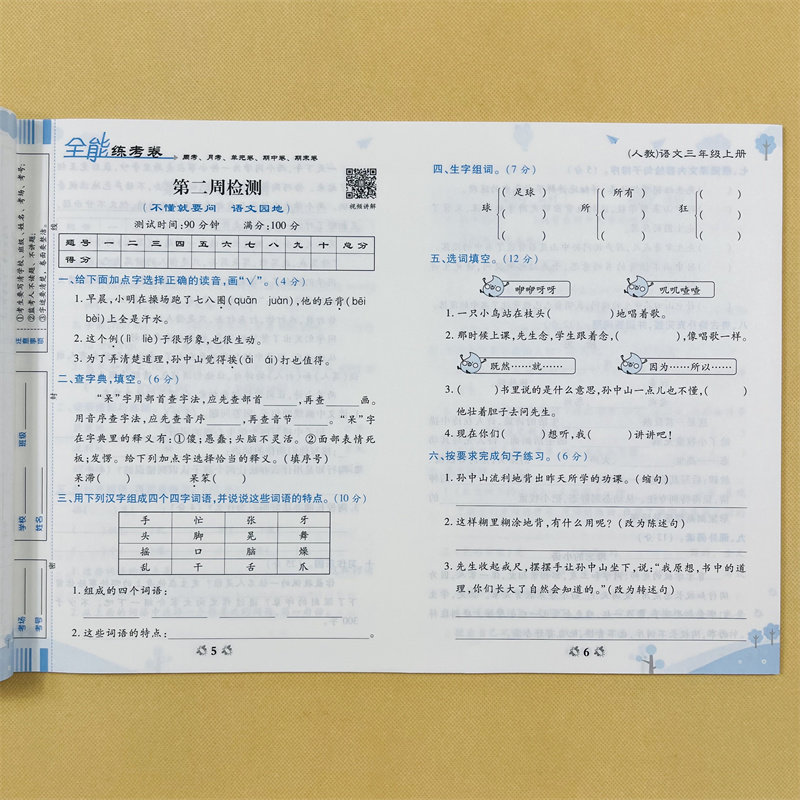 ①考生要写清学校、班级、姓名、考场、考号;
②监考人不读题、不讲题;
③字迹要清楚,卷面要整洁。
注意事项
班级
学校
姓名
考场
考号
线
封
密
全能练考卷
周考、月考、单元卷、期中卷、期末卷
第二周检测
(不懂就要问 语文园地)
视频讲解
测试时间:90分钟 满分:100分
题号 一 二 三 四 五 六 七 八 九 十 总分
得分
一、给下面加点字选择正确的读音,画“√”。(4分)
1.早晨,小明在操场跑了七八圈(quān juàn),他的后背(bēi
bèi)上全是汗水。
2.这个例(lì liè)子很形象,也很生动。
3.为了弄清楚道理,孙中山觉得挨(āi ái)打也值得。
二、查字典,填空。(6分)
“呆”字用部首查字法,应先查部首______,再查______画。
用音序查字法,应先查音序______,再查音节______。“呆”字
在字典里的释义有:①傻;愚蠢;头脑不灵活。②面部表情死
板;发愣。给下列加点字选择恰当的释义。(填序号)
呆滞( ) 呆笨( )
三、用下列汉字组成四个四字词语,并说说这些词语的特点。(10分)
手 忙 张 牙
头 脚 晃 舞
摇 口 脑 燥
乱 干 舌 爪
1.组成的四个词语:
2.这些词语的特点: 。
5
(人教)语文三年级上册
四、生字组词。(7分)
球 (足球) ( ) ( ) 所 (所有) ( ) ( ) 狂 ( ) ( ) ( )
五、选词填空。(12分)
咿咿呀呀 叽叽喳喳
1.一只小鸟站在枝头( )地唱着歌。
2.那时候上课,先生念,学生跟着念,( ),像唱歌一样。
既然……就…… 因为……所以……
3.( )书里说的是什么意思,孙中山一点儿也不懂,( )
他壮着胆子去问先生。
4.现在你们( )想听,我( )讲讲吧!
六、按要求完成句子练习。(6分)
1.孙中山流利地背出昨天所学的功课。(缩句)
2.这样糊里糊涂地背,有什么用呢?(改为陈述句)
3.先生收起戒尺,摆摆手让孙中山坐下,说:“我原想,书中的道
理,你们长大了自然会知道的。”(改为转述句)
6